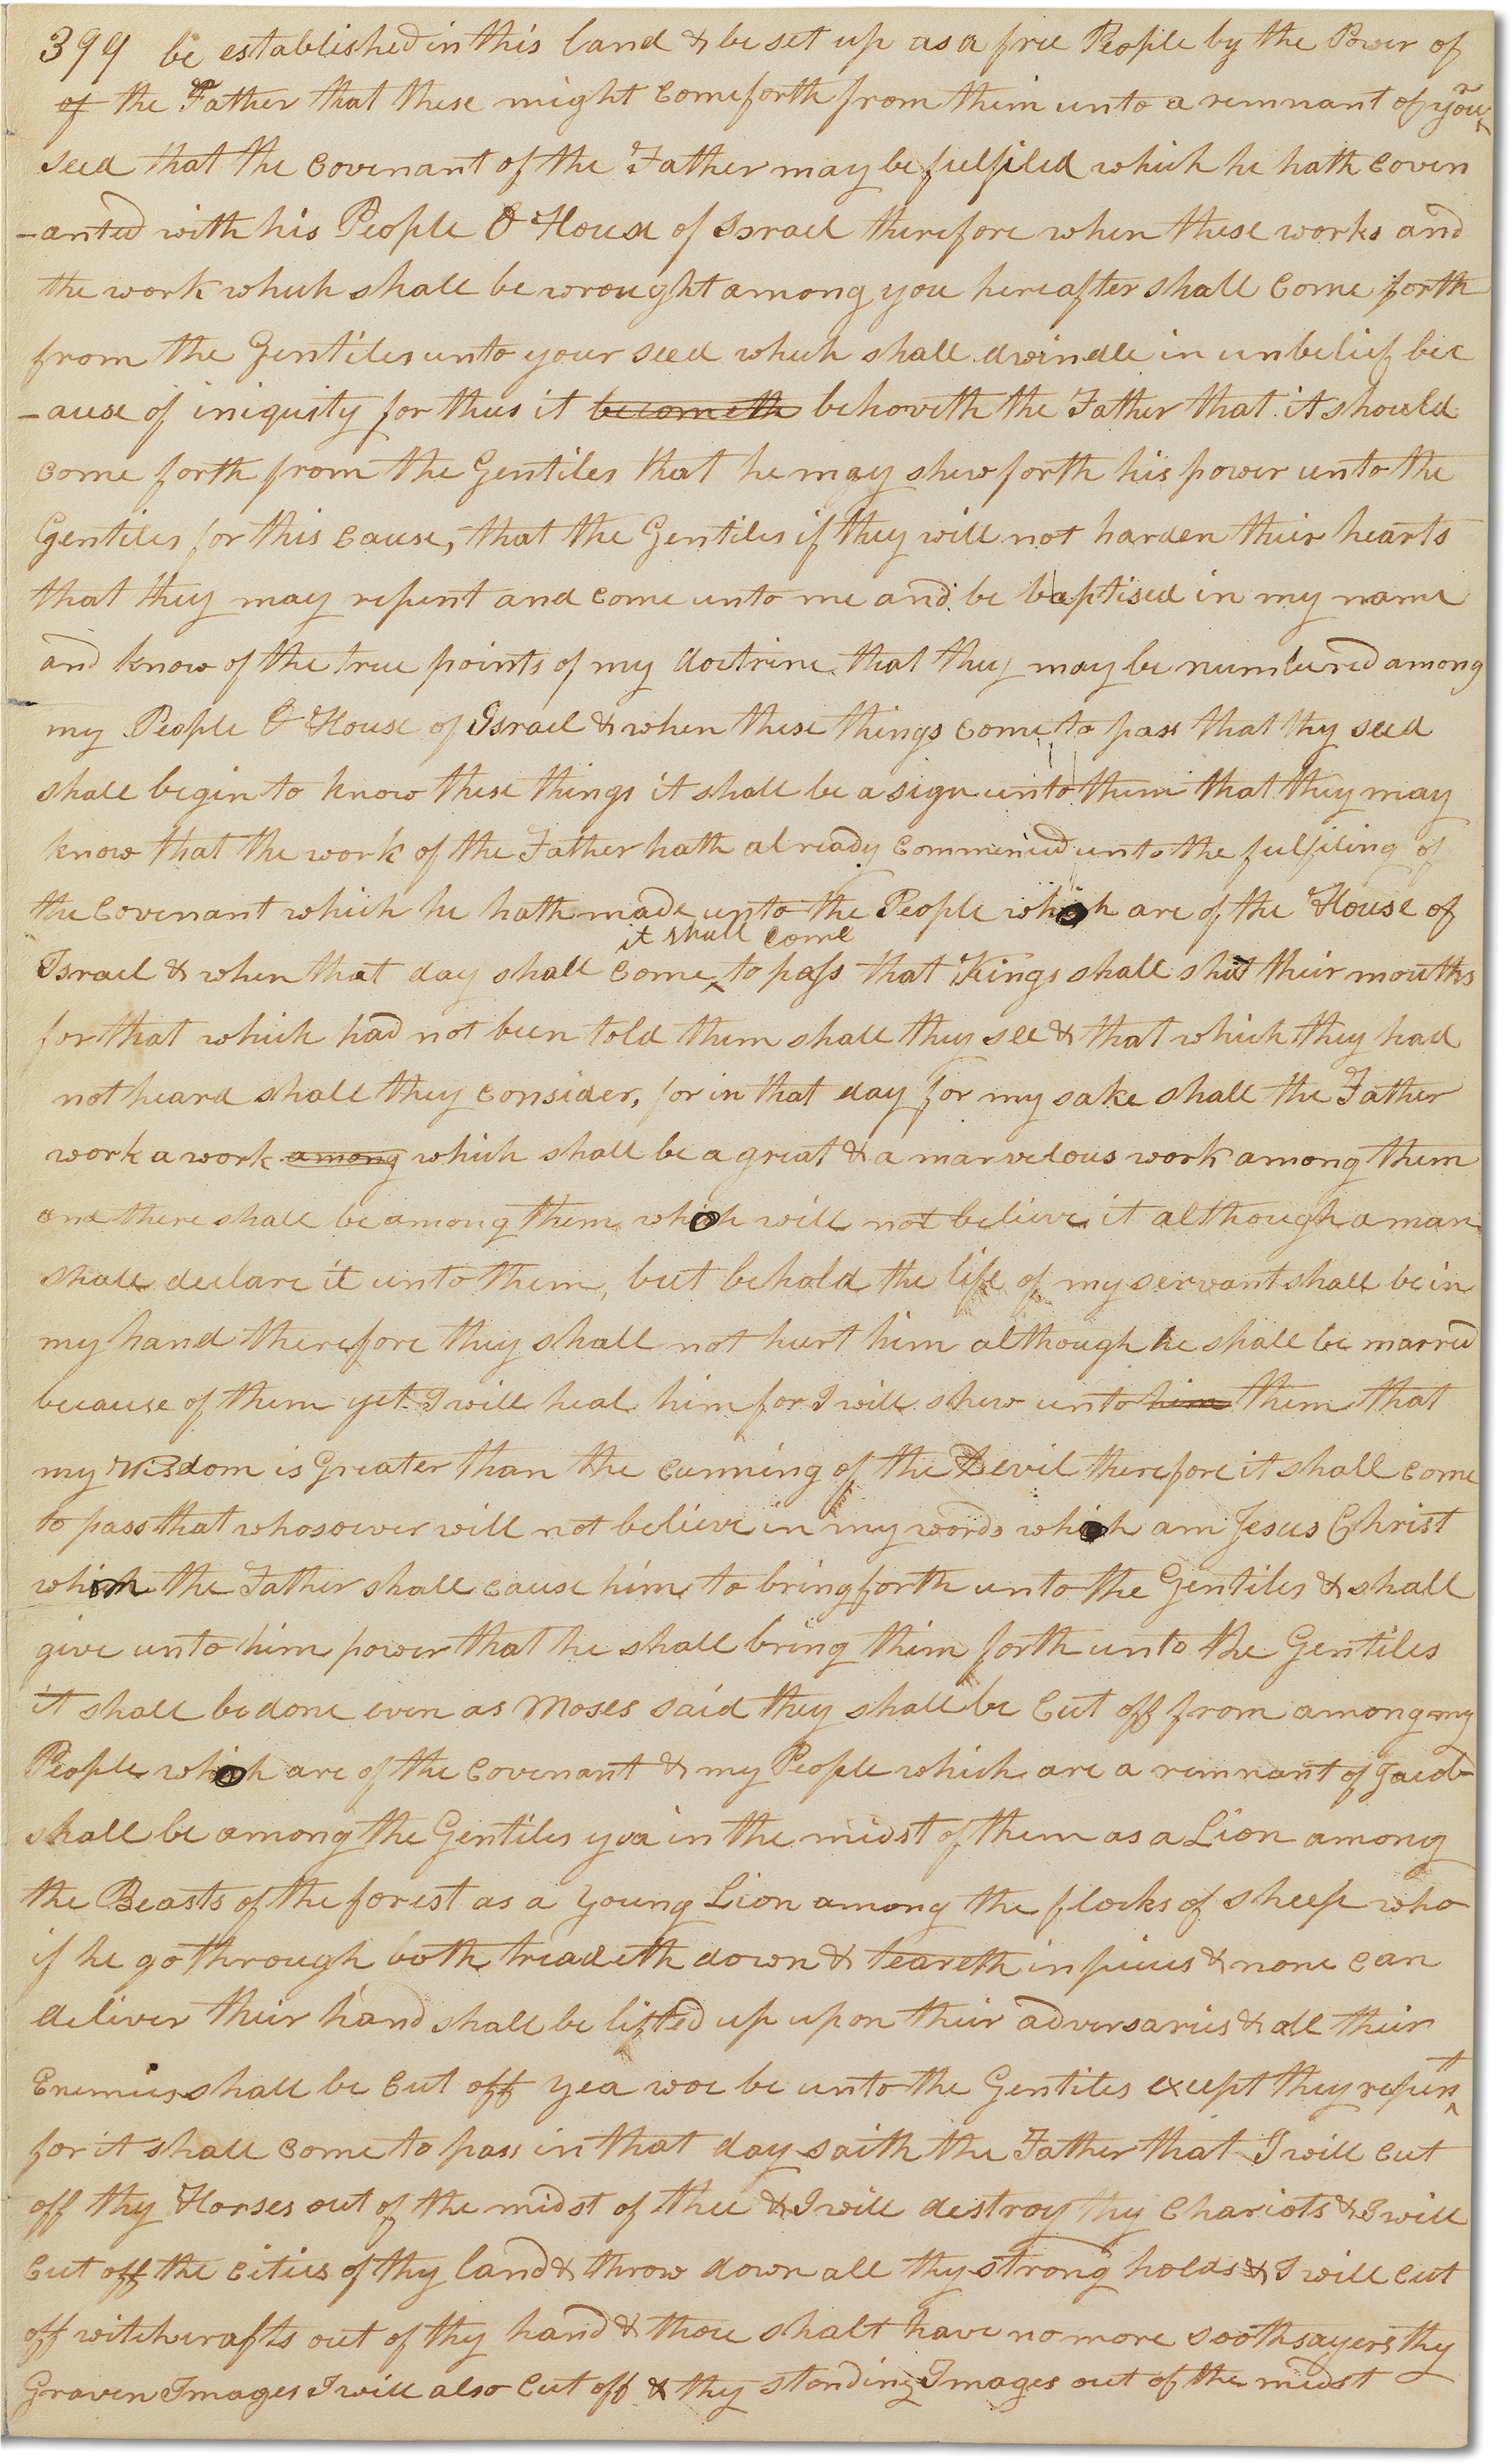 399 be established in this land & be set up as a free People by the Power of
of the Father that these might come forth from them unto a remnant of your
seed that the Covenant of the Father may be fulfiled which he hath Coven
-anted with his People O House of Israel therefore when these works and
the work which shall be wrought among you hereafter shall Come forth
from the Gentiles unto your seed which shall dwindle in unbelief bec
-ause of iniquity for thus it becometh behoveth the Father that it should
come forth from the Gentiles that he may shew forth his power unto the
Gentiles for this Cause, that the Gentiles if they will not harden their hearts
that they may repent and come unto me and be baptised in my name
and know of the true points of my doctrine that they may be numbered among
my People O House of Israel & when these things come to pass that thy seed
shall begin to know these things it shall be a sign unto them that they may
know that the work of the Father hath already Commenced unto the fulfiling of
the Covenant which he hath made unto the People which are of the House of
it shall come
Israel & when that day shall Come ^ to pass that Kings shall shut their mouths
for that which had not been told them shall they see & that which they had
not heard shall they consider, for in that day for my sake shall the Father
work a work among which shall be a great & a marvelous work among them
and there shall be among them which will not believe it although a man
shall declare it unto them, but behold the life of my servant shall be in
my hand therefore they shall not hurt him although he shall be marred
because of them yet I will heal him for I will shew unto him them that
my Wisdom is Greater than the Cunning of the Devil therefore it shall Come
to pass that whosoever will not believe in my words which am Jesus Christ
which the Father shall cause him to bring forth unto the Gentiles & shall
give unto him power that he shall bring them forth unto the Gentiles
it shall be done even as Moses said they shall be Cut off from among my
People which are of the Covenant & my People which are a remnant of Jacob
shall be among the Gentiles yea in the midst of them as a Lion among
the Beasts of the forest as a Young Lion among the flocks of sheep who
if he go through both treadeth down & teareth in pieces & none Can
deliver their hand shall be lifted up upon their adversaries & all their
Enemies shall be Cut off yea woe be unto the Gentiles except they repent
for it shall Come to pass in that day saith the Father that I will Cut
off thy Horses out of the midst of thee & I will destroy thy Chariots & I will
Cut off the Cities of thy land & throw down all thy strong holds & I will Cut
off witchcrafts out of thy hand & thou shalt have no more soothsayers thy
Graven Images I will also Cut off & thy standing Images out of the midst